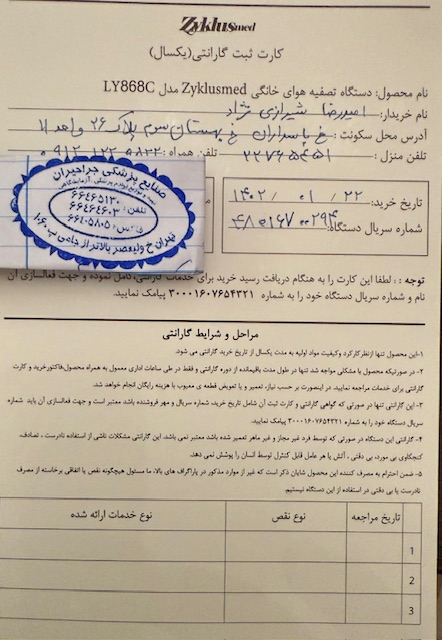 Zyklusmed
کارت ثبت گارانتی(یکسال)
نام محصول: دستگاه تصفیه هوای خانگی Zyklusmed مدل LY868C
نام خریدار: امیررضا شیرازی نژاد
آدرس محل سکونت: خ پاسداران خ بهستان سوم پلاک ۲۶ واحد ۱۱
تلفن منزل: ۲۲۷۶۵۴۵۱ تلفن همراه: ۰۹۱۲
تاریخ خرید: ۱۴۰۲/۰۱/۲۲
شماره سریال دستگاه:
صنایع پزشکی جراحیران
تهیه و توزیع لوازم پزشکی، آزمایشگاهی
تلفن: ۶۶۴۶۵۱۳۰
۶۶۴۶۴۶۰۳
فاکس: ۶۶۴۰۵۸۰۵
تهران خ ولیعصر بالاتر از جامی پ ۱۰۶۰
توجه :: لطفا این کارت را به هنگام دریافت رسید خرید برای خدمات گارانتی، کامل نموده و جهت فعالسازی آن
نام و شماره سریال دستگاه خود را به شماره ۳۰۰۰۱۶۰۷۶۵۴۳۲۱ پیامک نمایید.
مراحل و شرایط گارانتی
۱-این محصول تنها ازنظرکارکرد وکیفیت مواد اولیه به مدت یکسال از تاریخ خرید گارانتی می شود.
۲- در صورتیکه محصول با مشکلی مواجه شد تنها در طول مدت باقیمانده از دوره گارانتی و فقط در طی ساعات اداری معمول به همراه محصول،فاکتورخرید و کارت
گارانتی برای خدمات مراجعه نمایید. در اینصورت بر حسب نیاز، تعمیر و یا تعویض قطعه ی معیوب با هزینه رایگان انجام خواهد شد.
۳- این گارانتی تنها در صورتی که گواهی گارانتی و کارت ثبت آن شامل تاریخ خرید، شماره سریال و مهر فروشنده باشد معتبر است و جهت فعالسازی آن باید شماره
سریال دستگاه خود را به شماره ۳۰۰۰۱۶۰۷۶۵۴۳۲۱ پیامک نمایید.
۴- گارانتی این دستگاه در صورتی که توسط فرد غیر مجاز و غیر ماهر تعمیر شده باشد معتبر نمی باشد. این گارانتی مشکلات ناشی از استفاده نادرست ، تصادف،
کنجکاوی بی مورد، بی دقتی ، آتش یا هر عامل قابل کنترل توسط انسان را پوشش نمی دهد.
۵- ضمن احترام به مصرف کننده این محصول شایان ذکر است که غیر از موارد مذکور در پاراگراف های بالا، ما مسئول هیچگونه نقص یا اتفاقی برخاسته از مصرف
نادرست یا بی دقتی در استفاده از این دستگاه نیستیم.
تاریخ مراجعه نوع نقص نوع خدمات ارائه شده
1
2
3